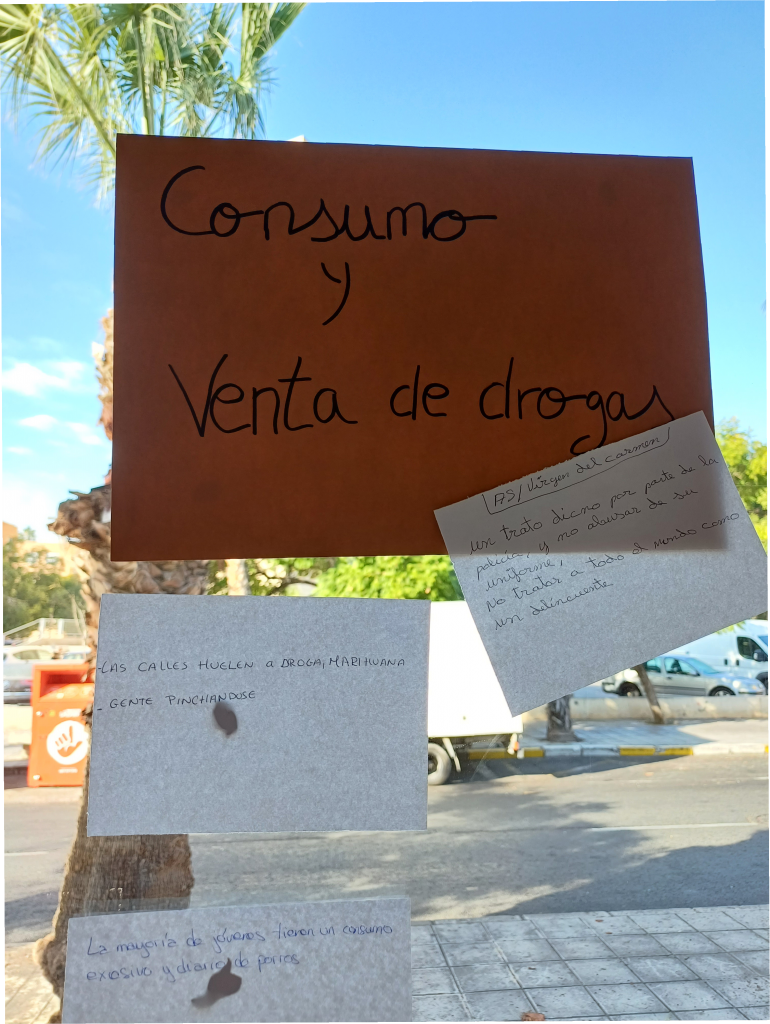 Consumo
y
Venta de drogas
AS/Virgen del carmen
un trato digno por parte de la
policía, y no abusar de su
uniforme,
No tratar a todo el mundo como
un delincuente
-LAS CALLES HUELEN a DROGA, MARIHUANA
- GENTE PINCHANDOSE
La mayoría de jóvenes tienen un consumo
exesivo y diario de porros